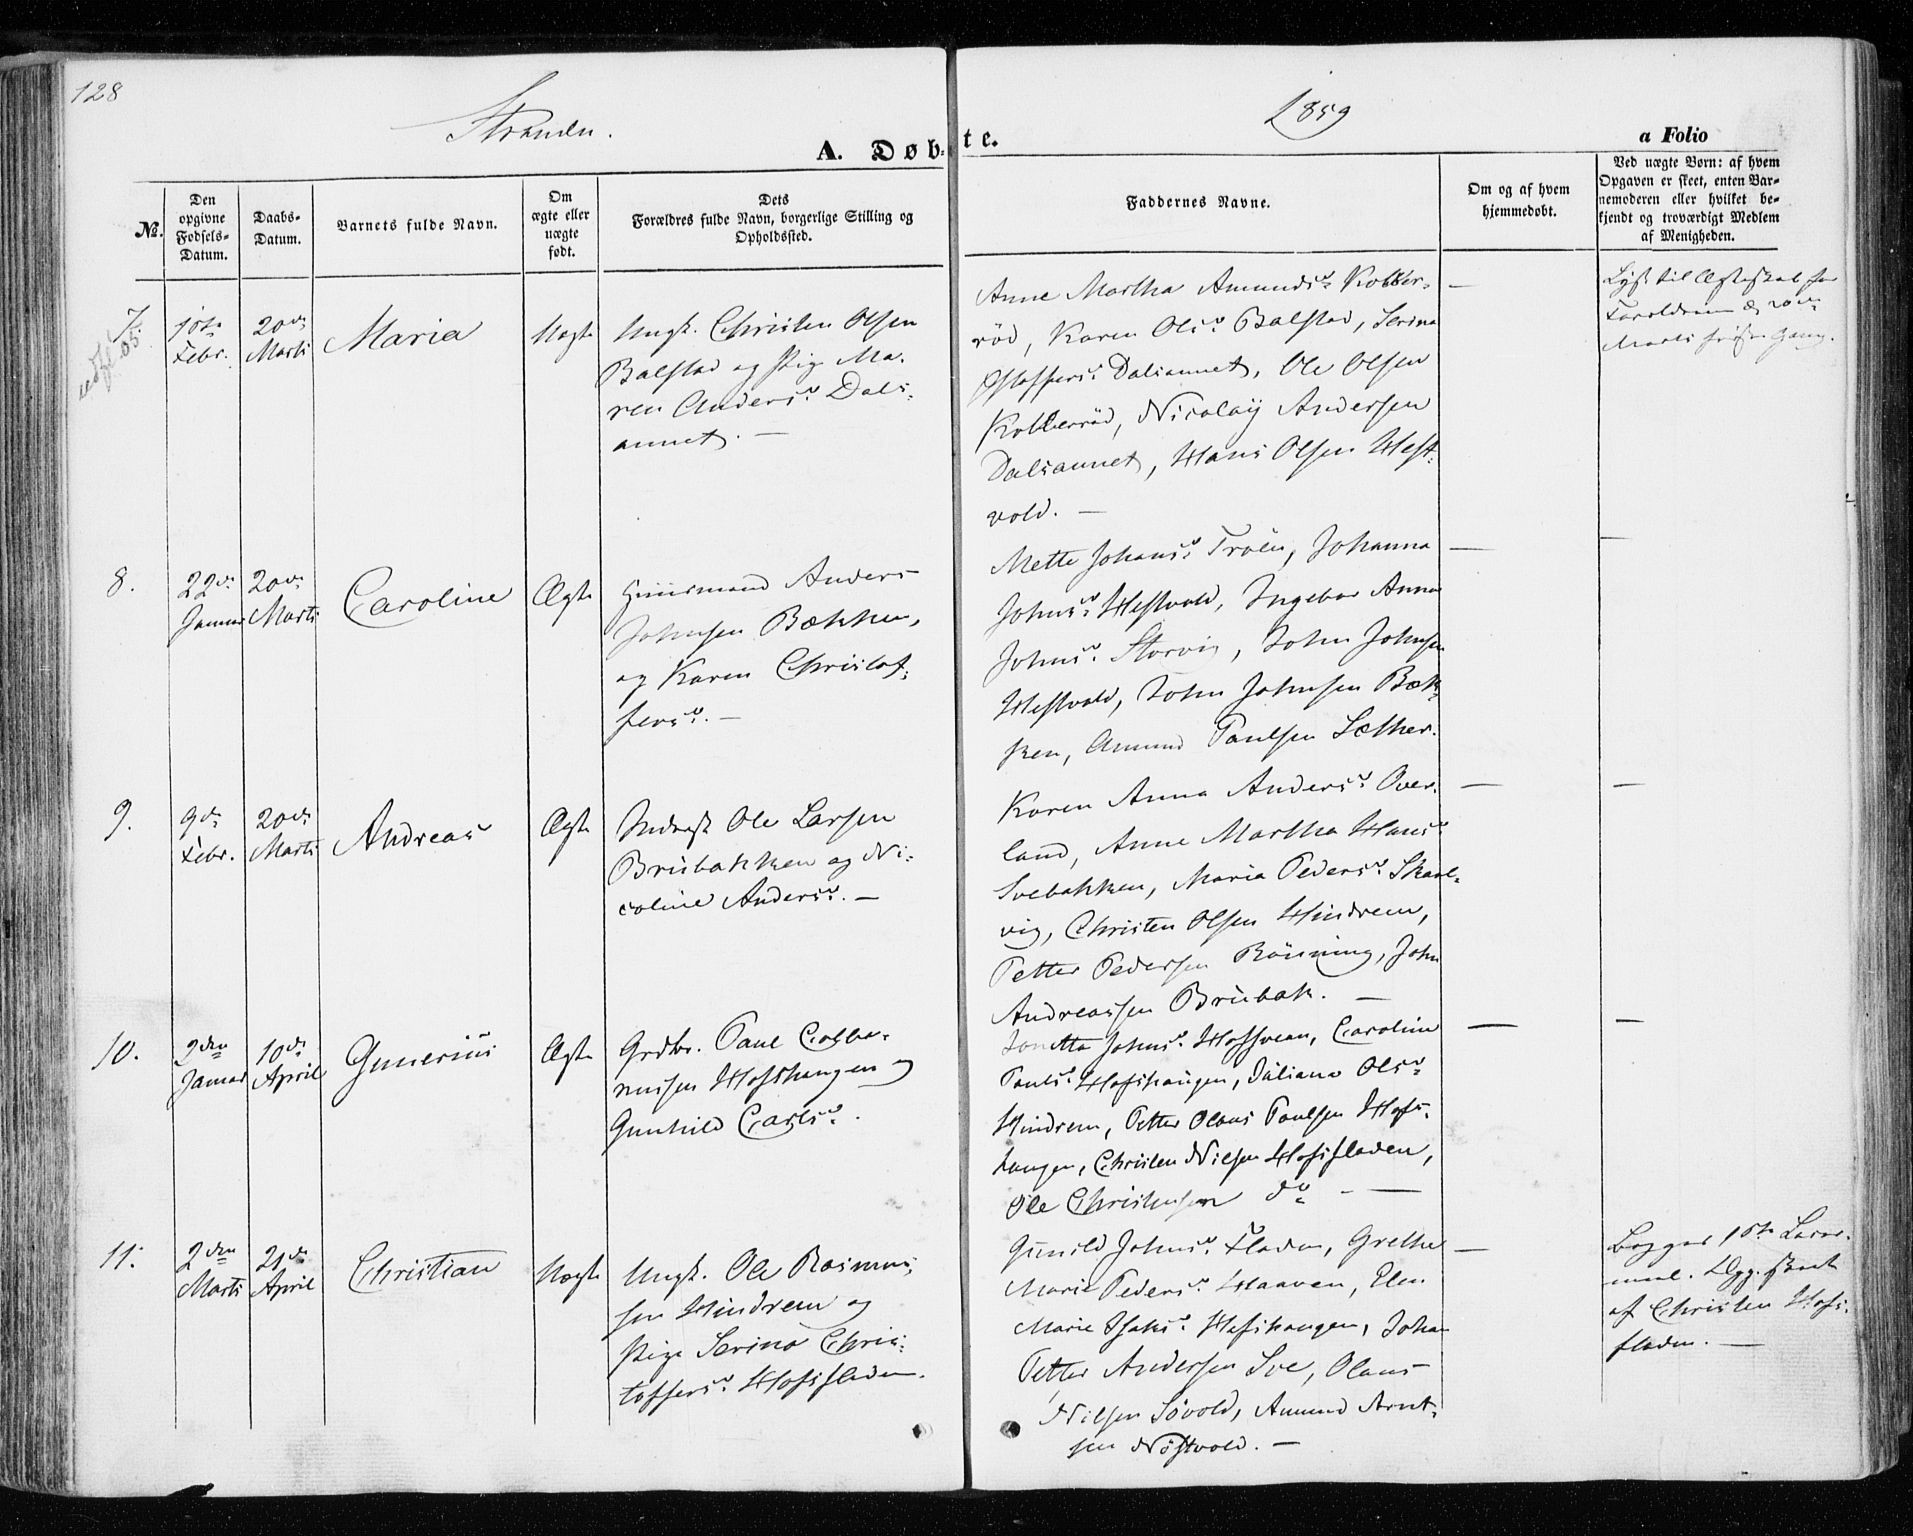 128
Stranden.
1859
A. Døbte.
a Folio
No.
Den opgivne Fødsels-Datum.
Daabs-Datum.
Barnets fulde Navn.
Om ægte eller uægte født.
Dets Forældres fulde Navn, borgerlige Stilling og Opholdssted.
Faddernes Navne.
Om og af hvem hjemmedøbt.
Ved uægte Børn: af hvem Opgaven er skeet, enten Barnemoderen eller hvilket bekjendt og troværdigt Medlem af Menigheden.
7.
Febr.
20de Marts
Maria
Uægte
Ungk. Christen Olsen
Balstad og Pige Ma-
ren Andersd. Dals-
aunet. —
Anne Martha Amundsd.
rød, Karen Olsd. Balstad, Serina
Dalsaunet, Ole Olsen
Nicolay Andersen
Dalsaunet, Hans Olsen Hest-
vold. —
—
Lyst til Ægteskab for
Forældrene d. 20de
Marts første Gang.
8.
22de Januar
20de Marts
Caroline
Ægte
Huusmand Anders
Johnsen Bækken,
og Karen Christof-
fersd. —
Mette Johansd. Trøen, Johanna
Johnsd. Hestvold, Ingebor Anna
Johnsd. Storvig, John Johnsen
Hestvold, John Johnsen Bæk-
ken, Amund Paulsen Sæther.
—
—
9.
9de Febr.
20de Marts
Andreas
Ægte
Inderst Ole Larsen
Brubakken og Ni-
coline Andersd. —
Karen Anna Andersd. Over-
land, Anne Martha Hansd.
Svebakken, Maria Pedersd. Skarl-
vig, Christen Olsen Hindrem,
Petter Pedersen Rönning, John
Andreassen Brubak. —
—
—
10.
2den Januar
10de April
Gunerius
Ægte
Grdbr. Paul Colbe-
rnssen Hofshaugen og
Gunhild Carlsd.
Jonetta Johnsd. Caroline
Paulsd. Hofshaugen, Juliana Olsd.
Hindrem, Petter Olaus Paulsen Hofs-
haugen, Christen Nilsen Hofsfladen,
Ole Christensen do —
—
—
11.
2den Marts
21de April
Christian
Uægte
Ungk. Ole Rasmus-
sen Hindrem og
Pige Serina Chris-
toffersd. Hofsfladen.
Gunild Johnsd. Fladen, Grethe
Marie Pedersd. Haaven, Elen
Marie Isaksd. Hofshaugen, Johan
Petter Andersen Sve, Olaus
Nilsen Søvold, Amund Arnt-
sen Nøstvold. —
—
Begges 1ste Leier-
maal. Opg. skeet
af Christen Hofs-
fladen. —